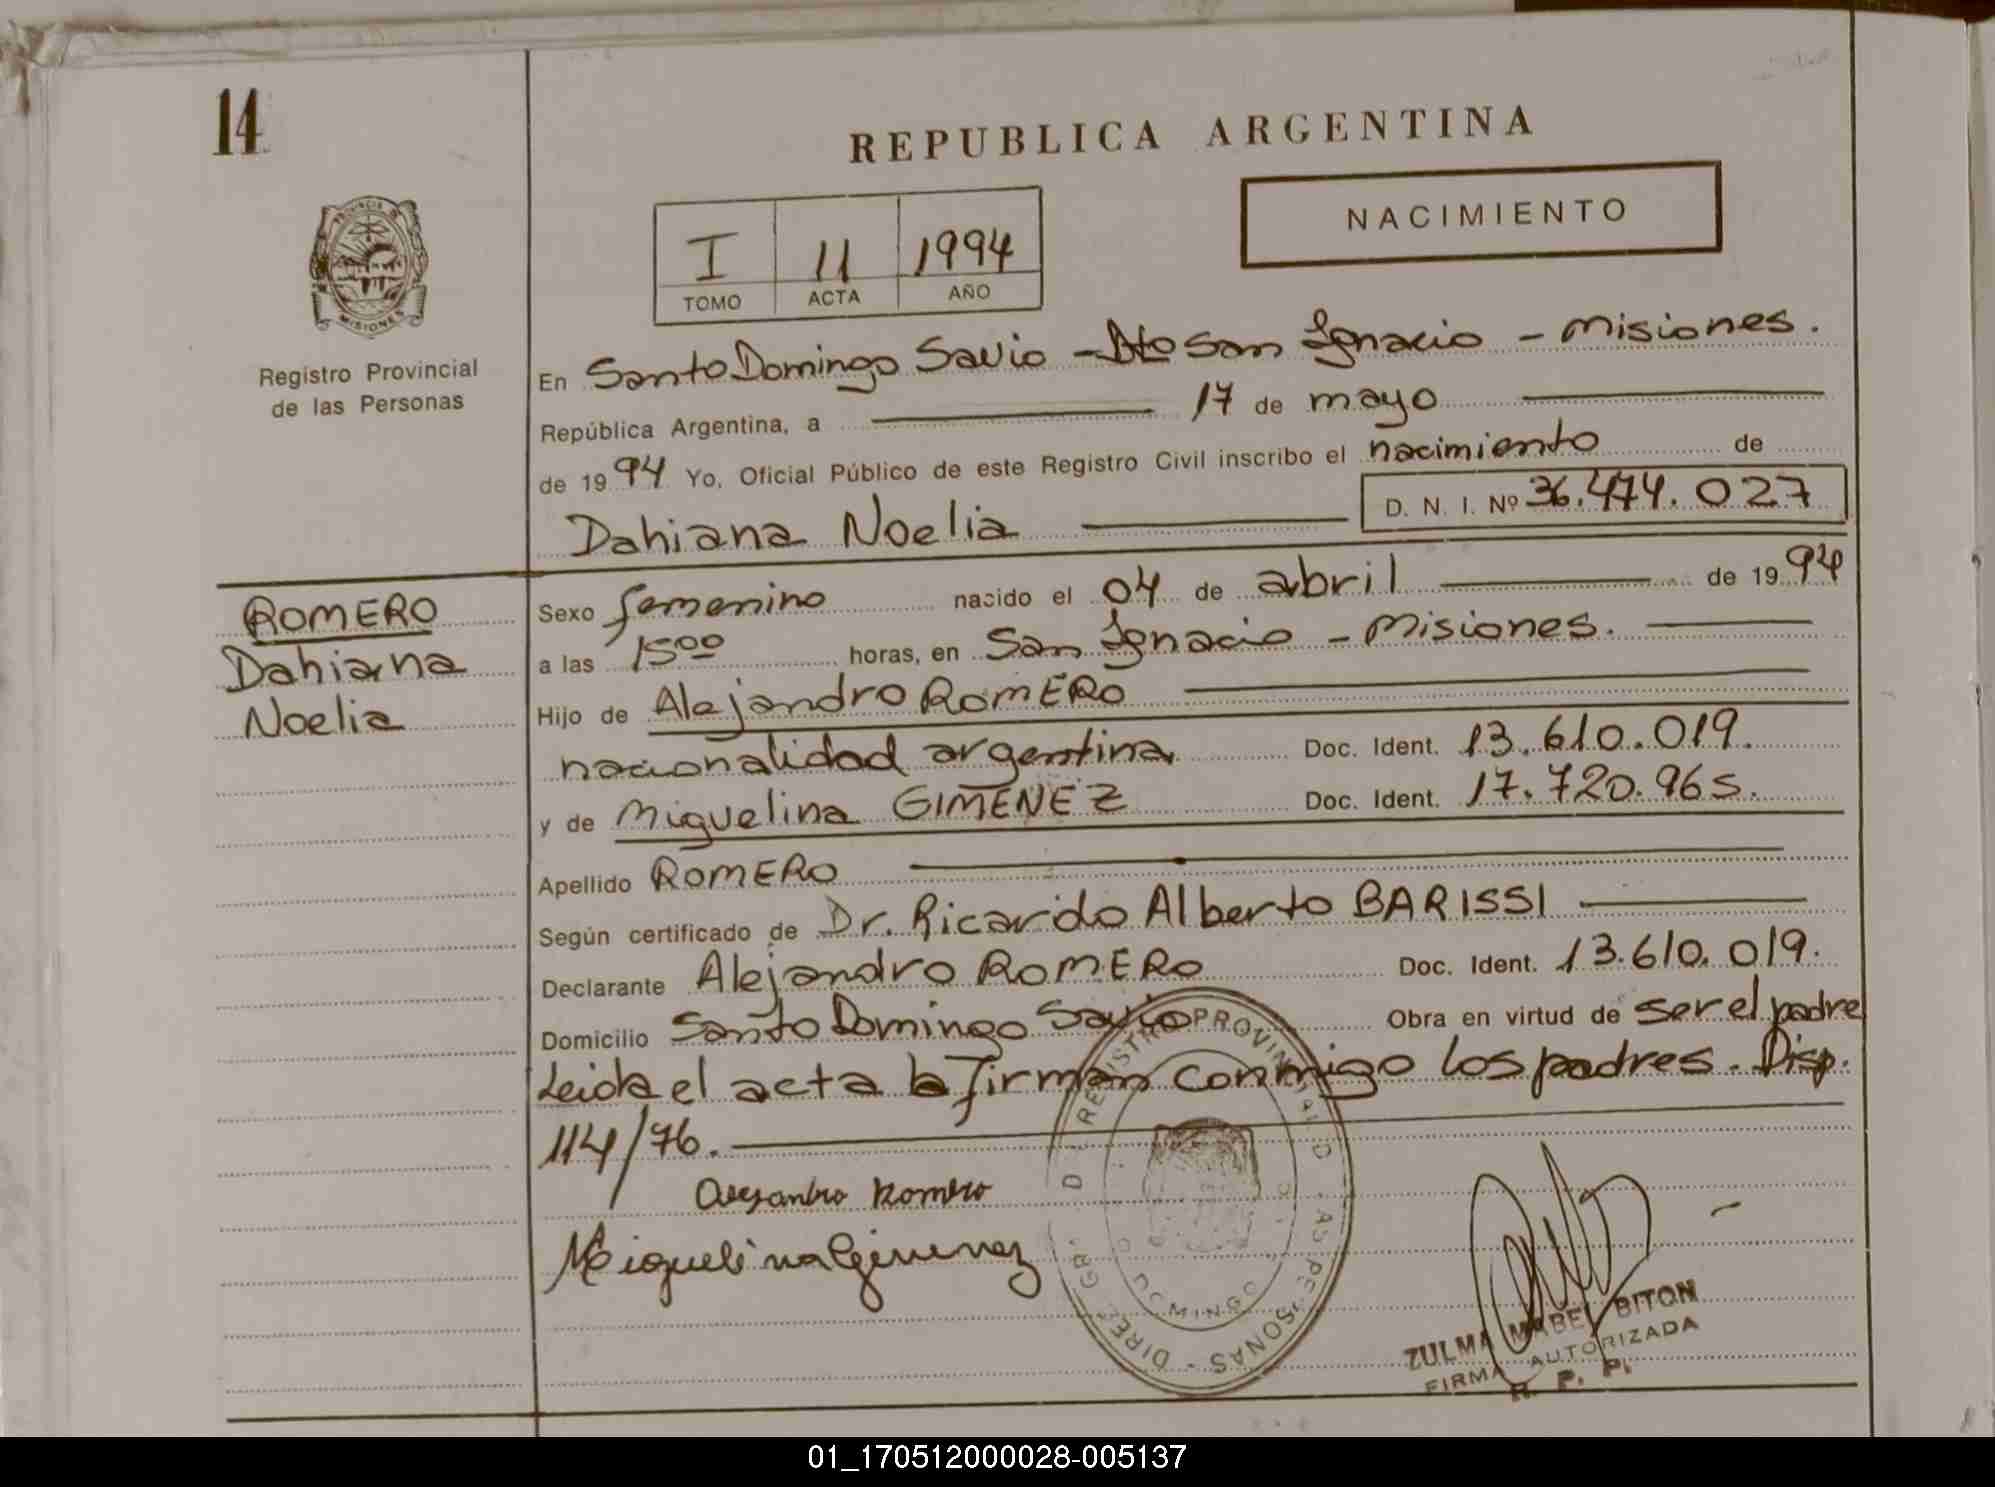 14
REPUBLICA ARGENTINA
NACIMIENTO
I 11 1994
TOMO ACTA AÑO
PROVINCIA D
MISIONES
Registro Provincial
de las Personas
En Santo Domingo Savio - Dto San Ignacio - Misiones.
República Argentina, a 17 de mayo
de 1994 Yo, Oficial Público de este Registro Civil inscribo el nacimiento de
Dahiana Noelia D. N. I. Nº 36.474.027
ROMERO
Dahiana
Noelia
Sexo femenino nacido el 04 de abril de 1994
a las 15⁰⁰ horas, en San Ignacio - Misiones.
Hijo de Alejandro ROMERO
nacionalidad argentina Doc. Ident. 13.610.019.
y de Miguelina GIMENEZ Doc. Ident. 17.720.965.
Apellido ROMERO
Según certificado de Dr. Ricardo Alberto BARISSI
Declarante Alejandro ROMERO Doc. Ident. 13.610.019.
Domicilio Santo Domingo Savio Obra en virtud de ser el padre
Leida el acta la firman conmigo los padres. Disp.
114/76.
Alejandro Romero
Miguelina Gimenez
ZULMA MABEL BITON
FIRMA AUTORIZADA
R. P. P.
01_170512000028-005137